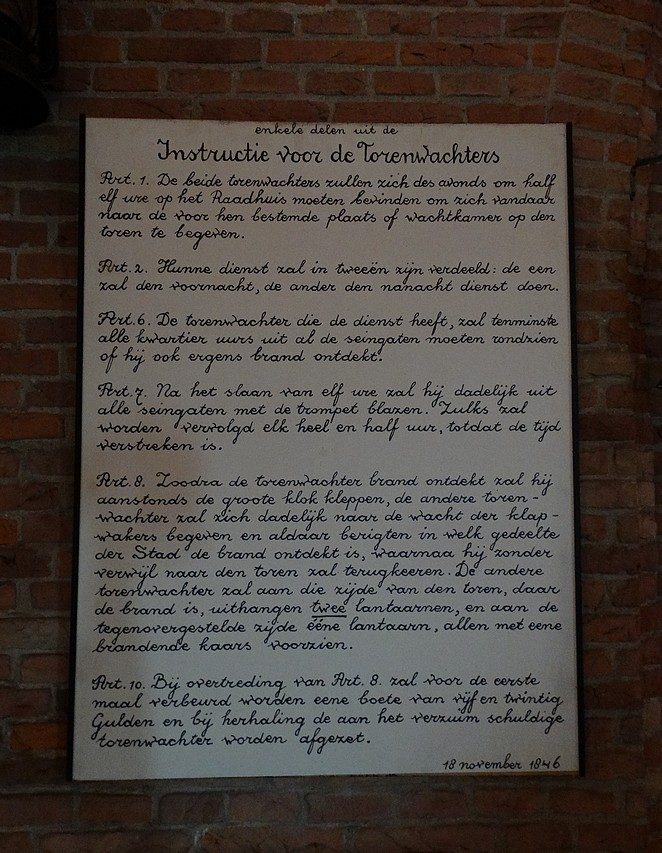 enkele delen uit de
Instructie voor de Torenwachters
Art. 1. De beide torenwachters zullen zich des avonds om half
elf ure op het Raadhuis moeten bevinden om zich vandaar
naar de voor hen bestemde plaats of wachtkamer op den
toren te begeven.
Art. 2. Hunne dienst zal in tweeën zijn verdeeld: de een
zal den voornacht, de ander den nanacht dienst doen.
Art. 6. De torenwachter die de dienst heeft, zal tenminste
alle kwartier uurs uit al de seingaten moeten rondzien
of hij ook ergens brand ontdekt.
Art. 7. Na het slaan van elf ure zal hij dadelijk uit
alle seingaten met de trompet blazen. Zulks zal
worden vervolgd elk heel en half uur, totdat de tijd
verstreken is.
Art. 8. Zoodra de torenwachter brand ontdekt zal hij
aanstonds de groote klok kleppen, de andere toren-
wachter zal zich dadelijk naar de wacht der klap-
wakers begeven en aldaar berigten in welk gedeelte
der Stad de brand ontdekt is, waarnaa hij zonder
verwijl naar den toren zal terugkeeren. De andere
torenwachter zal aan die zijde van den toren, daar
de brand is, uithangen twee lantaarnen, en aan de
tegenovergestelde zijde ééne lantaarn, allen met eene
brandende kaars voorzien.
Art. 10. Bij overtreding van Art. 8. zal voor de eerste
maal verbeurd worden eene boete van vijf en twintig
Gulden en bij herhaling de aan het verzuim schuldige
torenwachter worden afgezet.
18 november 1846